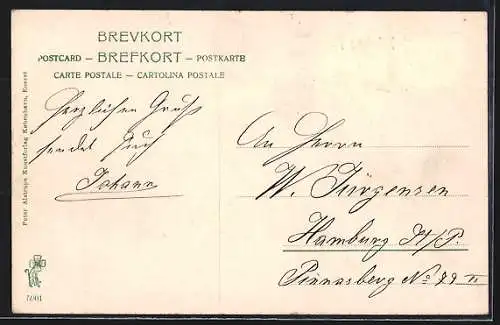 BREVKORT
POSTCARD – BREFKORT – POSTKARTE
CARTE POSTALE – CARTOLINA POSTALE
Herzlichen Gruß
sendet Euch
Johann
An Herrn
W. Jürgensen
Hamburg St/P.
Pinnasberg No 79 II
Peter Alstrups Kunstforlag Kebenhavn, Eneret